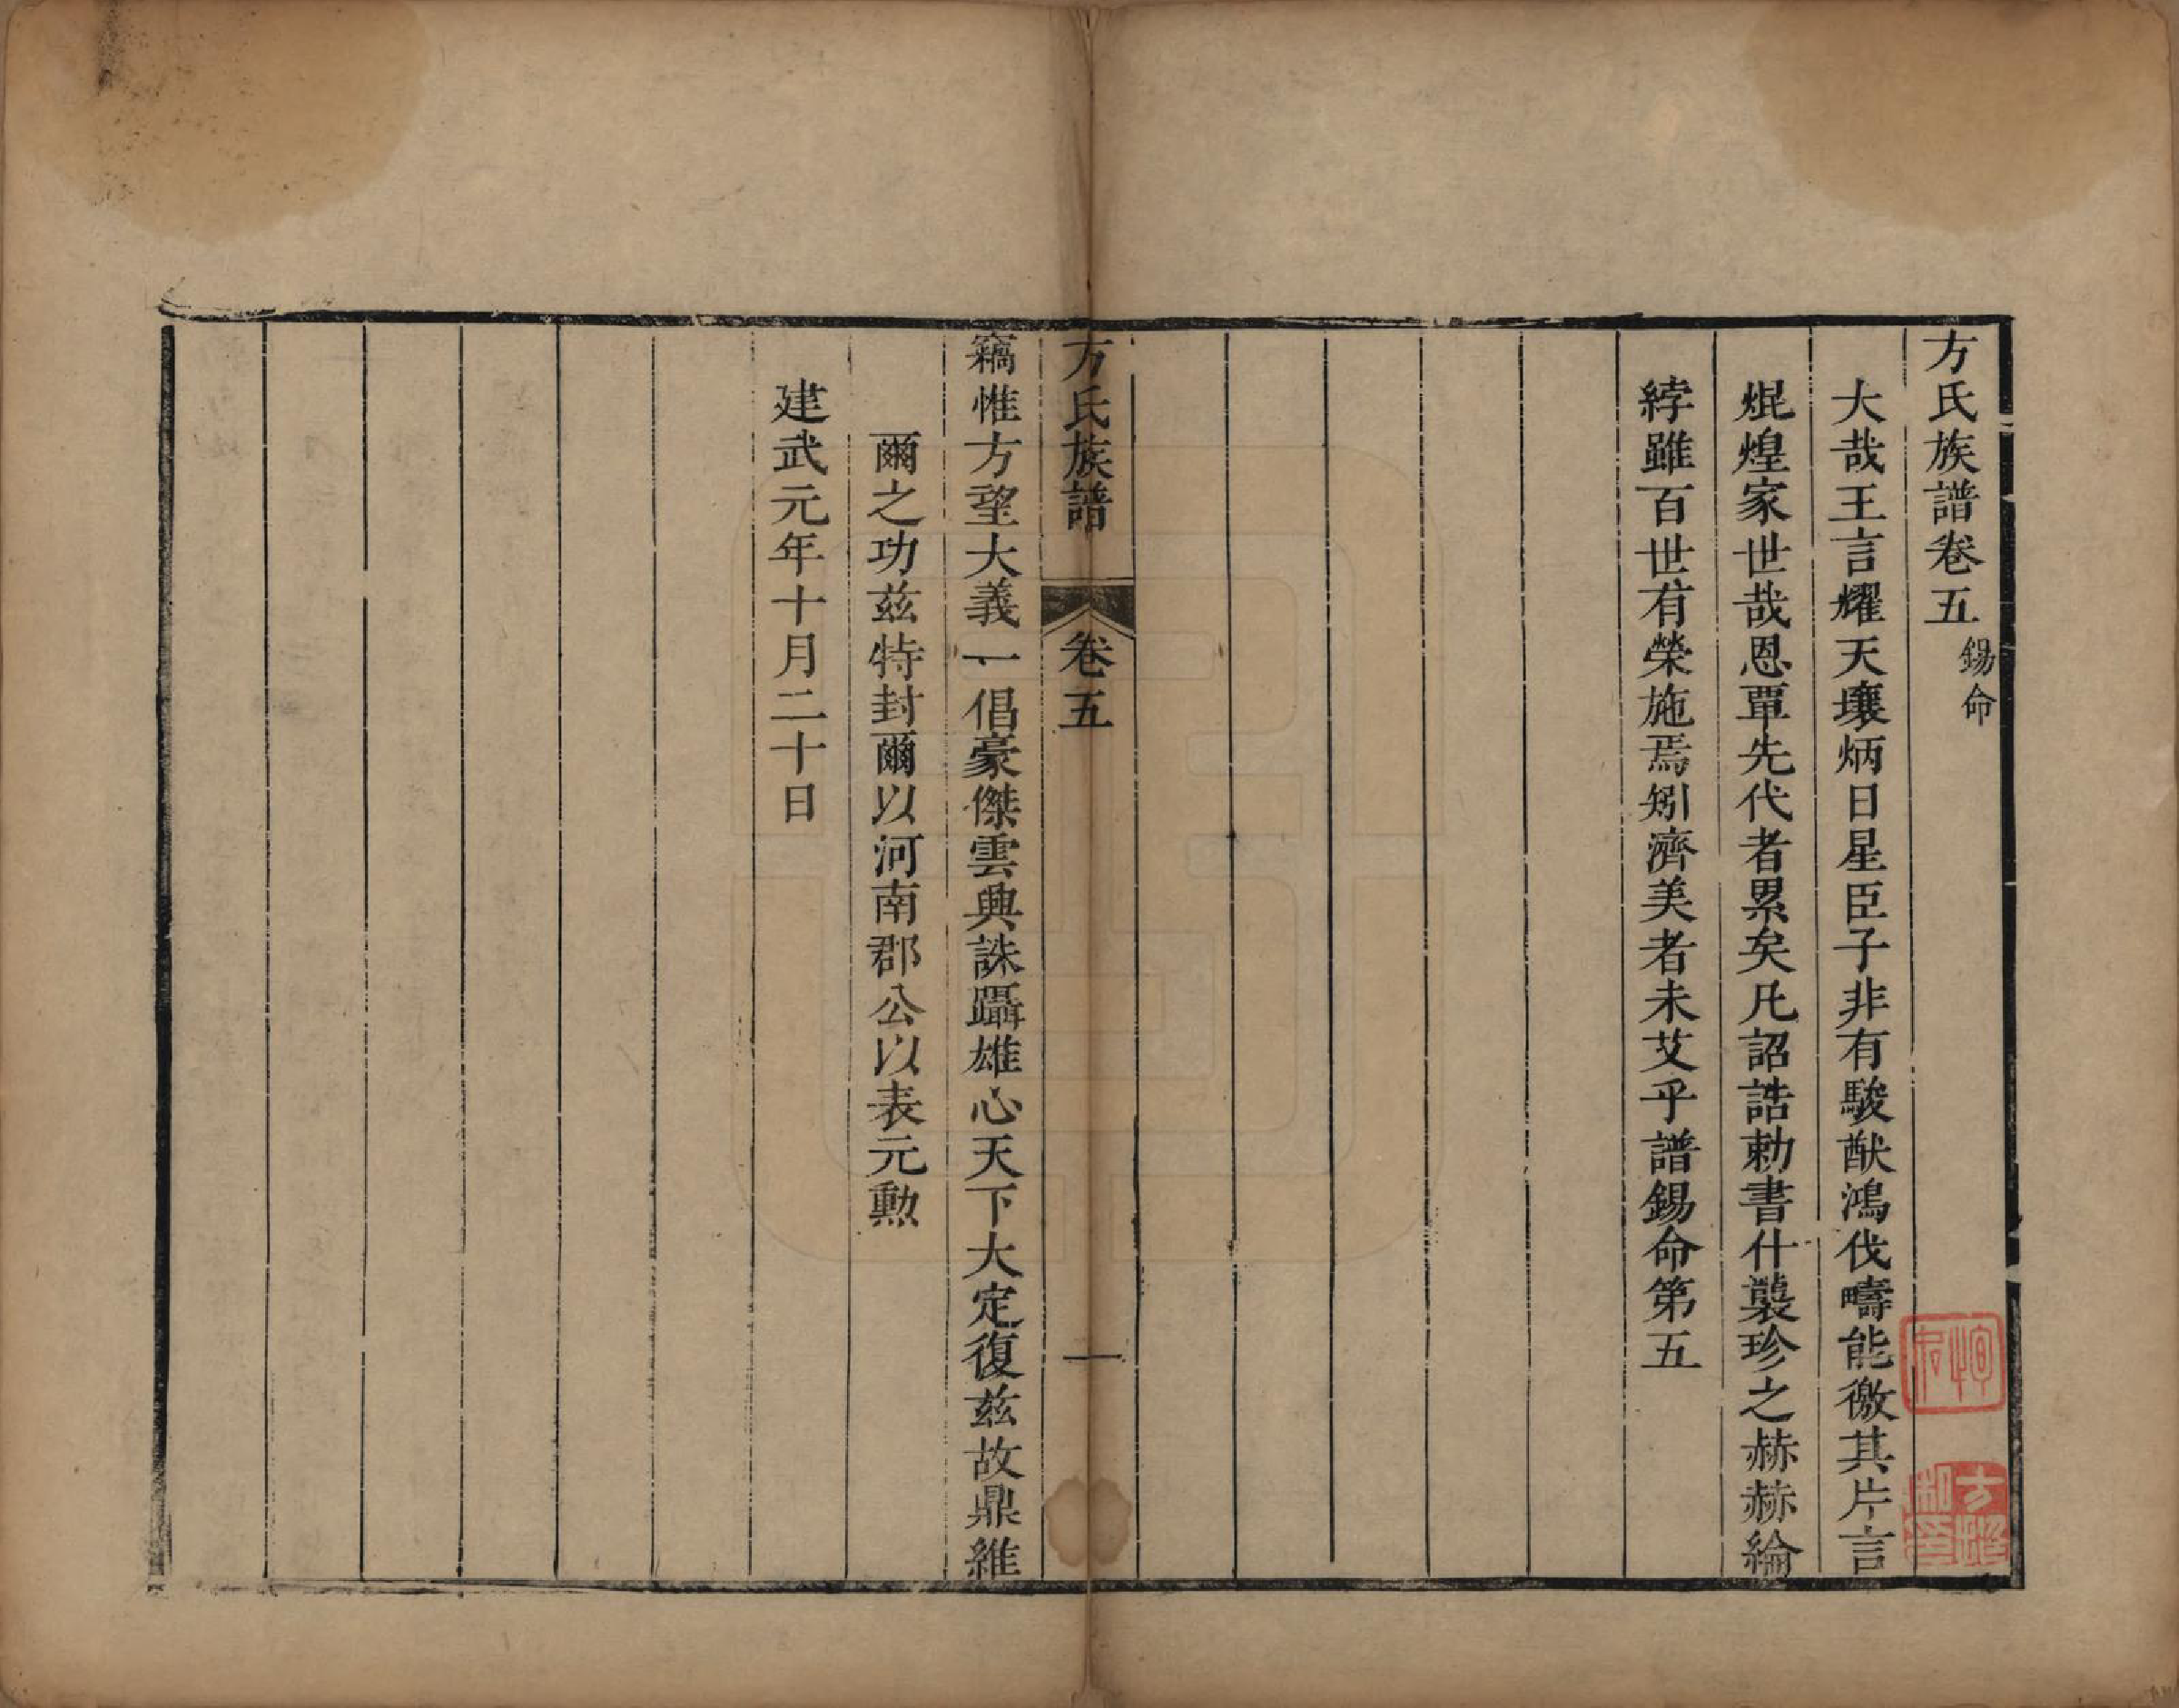 方氏族譜卷五 錫命
大哉王言耀天壤炳日星臣子非有駿猷鴻伐疇能徼其片言
焜煌家世哉恩覃先代者累矣凡詔誥勅書什襲珍之赫赫綸
綍雖百世有榮施焉矧濟美者未艾乎譜錫命第五
方氏族譜 卷五 一
竊惟方望大義一倡豪傑雲興誅躡雄心天下大定復茲故鼎維
爾之功茲特封爾以河南郡公以表元勲
建武元年十月二十日